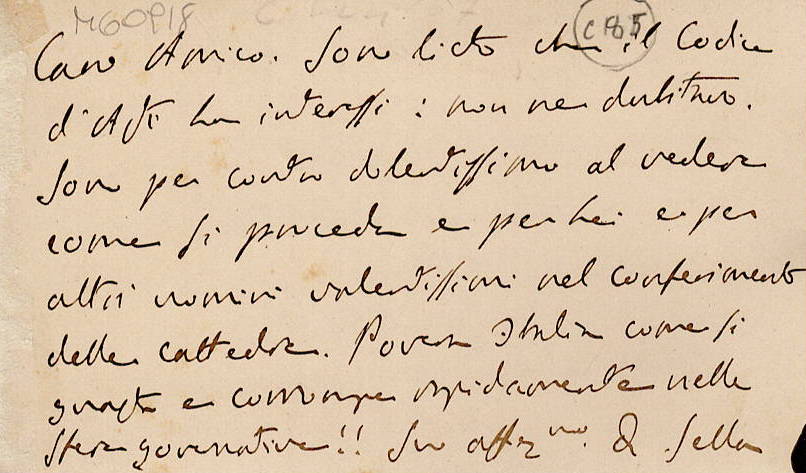 M60918
C 85
Caro Amico. Sono lieto che il Codice
d'Asti La interessi : non ne dubitavo.
Sono per contro dolentissimo al vedere
come si proceda e per Lei e per
altri uomini valentissimi nel conferimento
delle cattedre. Povera Italia come si
guasta e corrompe rapidamente nelle
sfere governative!! Suo affez.mo Q Sella